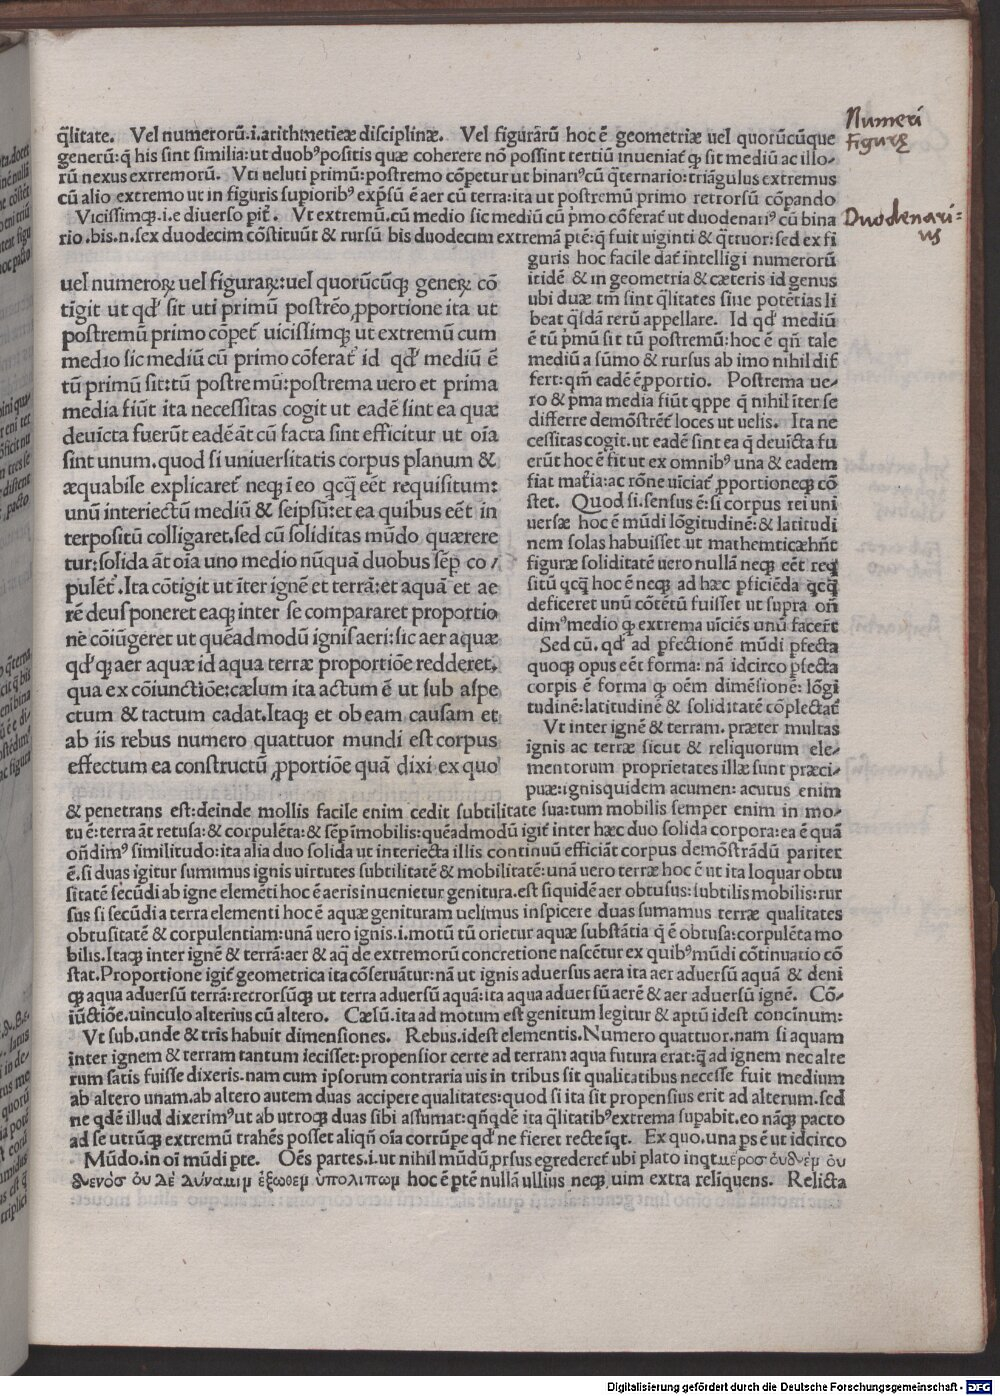 q̄litate. Vel numerorū.i.arithmeticæ disciplinæ. Vel figurārū hoc ē geometriæ uel quorūcūque
generū:q̄ his sint similia:ut duobꝰ positis quæ coherere nō possint tertiū inueniat̄ ꝙ sit mediū ac illo-
rū nexus extremorū. Vti ueluti primū:postremo cōpetur ut binariꝰ cū q̄ternario:triāgulus extremus
cū alio extremo ut in figuris supioribꝰ exp̄sū ē aer cū terra:ita ut postremū primo retrorsū cōpando
Vicissimqȝ.i.e diuerso pit̄. Vt extremū.cū medio sic mediū cū p̄mo cōferat̄ ut duodenariꝰ cū bina
rio.bis.n.sex duodecim cōstituūt & rursū bis duodecim extremā ptē:q̄ fuit uiginti & q̄ttuor:sed ex fi
Numeri
figurę
Duodenari=
us
uel numeroꝝ uel figuraꝝ:uel quorūcūqȝ geneꝝ cō
tigit ut qđ sit uti primū postrēo ꝓportione ita ut
postremū primo cōpet̄ uicissimqȝ ut extremū cum
medio sic mediū cū primo cōferat̄ id qđ mediū ē
tū primū sit:tū postremū:postrema uero et prima
media fiūt ita necessitas cogit ut eadē sint ea quæ
deuicta fuerūt eadē āt cū facta sint efficitur ut oīa
sint unum.quod si uniuersitatis corpus planum &
æquabile explicaret̄ neqȝ ī eo qcq̄ eēt requisitum:
unū interiectū mediū & seipsū:et ea quibus eēt in
terpositū colligaret.sed cū soliditas mūdo quærere
tur:solida āt oīa uno medio nūquā duobus sēp co/
pulēt̄.Ita cōtigit ut īter ignē et terrā:et aquā et ae
rē deus poneret eaqȝ inter se compararet proportio
ne cōiūgeret ut quēadmodū ignis aeri:sic aer aquæ
qđqȝ aer aquæ id aqua terræ proportiōe redderet.
qua ex cōiunctiōe:cælum ita actum ē ut sub aspe
ctum & tactum cadat.Itaqȝ et ob eam causam et
ab iis rebus numero quattuor mundi est corpus
effectum ea constructū ꝓportiōe quā dixi ex quo
guris hoc facile dat̄ intelligi numerorū
itidē & in geometria & cæteris id genus
ubi duæ tm̄ sint q̄litates siue potētias li
beat q̄sdā rerū appellare. Id qđ mediū
ē tū p̄mū sit tū postremū:hoc ē qn̄ tale
mediū a sūmo & rursus ab imo nihil dif
fert:qm̄ eadē ē ꝓportio. Postrema ue-
ro & p̄ma media fiūt qppe q̄ nihil īter se
differre demōstrēt̄ loces ut uelis. Ita ne
cessitas cogit.ut eadē sint ea q̄ deuicta fu
erūt hoc ē fit ut ex omnibꝰ una & eadem
fiat mat̄ia:ac rōne uiciat̄ ꝓportioneqȝ cō
stet. Quod si.sensus ē:si corpus rei uni
uersæ hoc ē mūdi lōgitudinē:& latitudi
nem solas habuisset ut mathemticæ hn̄t
figuræ soliditatē uero nullā neqȝ eēt req
situ qcqȝ hoc ē neqȝ ad hæc pficiēda qcq̄
deficeret unū cōtētū fuisset ut supra on̄
dimꝰ medio ꝙ extrema uīciēs unū facer̄t
Sed cū. qđ ad pfectionē mūdi pfecta
quoqȝ opus eēt forma: nā idcirco pfecta
corpis ē forma ꝙ oēm dimēsionē: lōgi
tudinē:latitudinē & soliditatē cōplectat̄
Vt inter ignē & terram. præter multas
ignis ac terræ sicut & reliquorum ele-
mentorum proprietates illæ sunt præci-
puæ:ignis quidem acumen: acutus enim
& penetrans est:deinde mollis facile enim cedit subtilitate sua:tum mobilis semper enim in mo-
tu ē:terra āt retusa:& corpulēta:& sēp īmobilis:quēadmodū igit̄ inter hæc duo solida corpora:ea ē quā
on̄dimꝰ similitudo:ita alia duo solida ut interiecta illis continuū efficiāt corpus demōstrādū pariter
ē.si duas igitur sumimus ignis uirtutes subtilitatē & mobilitatē:unā uero terræ hoc ē ut ita loquar obtu
sitatē secūdi ab igne elemēti hoc ē aeris inuenietur genitura.est siquidē aer obtusus:subtilis mobilis:rur
sus si secūdi a terra elementi hoc ē aquæ genituram uelimus inspicere duas sumamus terræ qualitates
obtusitatē & corpulentiam:unā uero ignis.i.motū tū orietur aquæ substātia q̄ ē obtusa:corpulēta mo
bilis.Itaqȝ inter ignē & terrā:aer & aq̄ de extremorū concretione nascētur ex quibꝰ mūdi cōtinuatio cō
stat.Proportione igit̄ geometrica ita cōseruātur:nā ut ignis aduersus aera ita aer aduersū aquā & deni
qȝ aqua aduersū terrā:retrorsūqȝ ut terra aduersū aquā:ita aqua aduersū aerē & aer aduersū ignē. Cō-
iūctiōe.uinculo alterius cū altero. Cælū.ita ad motum est genitum legitur & aptū idest concinum:
Vt sub.unde & tris habuit dimensiones. Rebus.idest elementis.Numero quattuor.nam si aquam
inter ignem & terram tantum iecisset:propensior certe ad terram aqua futura erat:q̄ ad ignem nec alte
rum satis fuisse dixeris.nam cum ipsorum contraria uis in tribus sit qualitatibus necesse fuit medium
ab altero unam.ab altero autem duas accipere qualitates:quod si ita sit propensius erit ad alterum.sed
ne qdē illud dixerimꝰ ut ab utroqȝ duas sibi assumat:qn̄qdē ita q̄litatibꝰ extrema supabit.eo nāqȝ pacto
ad se utrūqȝ extremū trahēs posset aliqn̄ oīa corrūpe qđ ne fieret recte īqt. Ex quo.una ps ē ut idcirco
Mūdo.in oī mūdi pte. Oēs partes.i.ut nihil mūdū ꝓrsus egrederet̄ ubi plato inqt μέροσ ὀυδνέμ ὀυ
δνενόσ ὀυ Δὲ Δύναμιμ ἐξωθεμ ὑπολιπωμ hoc ē ptē nullā ullius neqȝ uim extra reliquens. Relicta
Digitalisierung gefördert durch die Deutsche Forschungsgemeinschaft - DFG